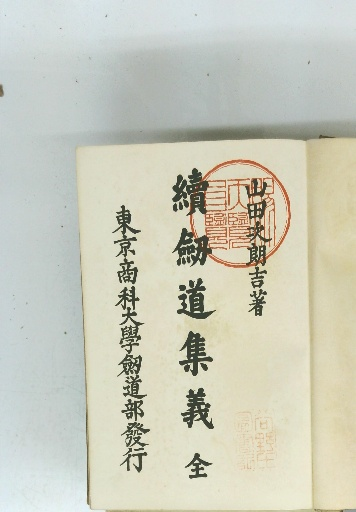 山田次朗吉著
續劍道集義 全
東京商科大學劍道部發行